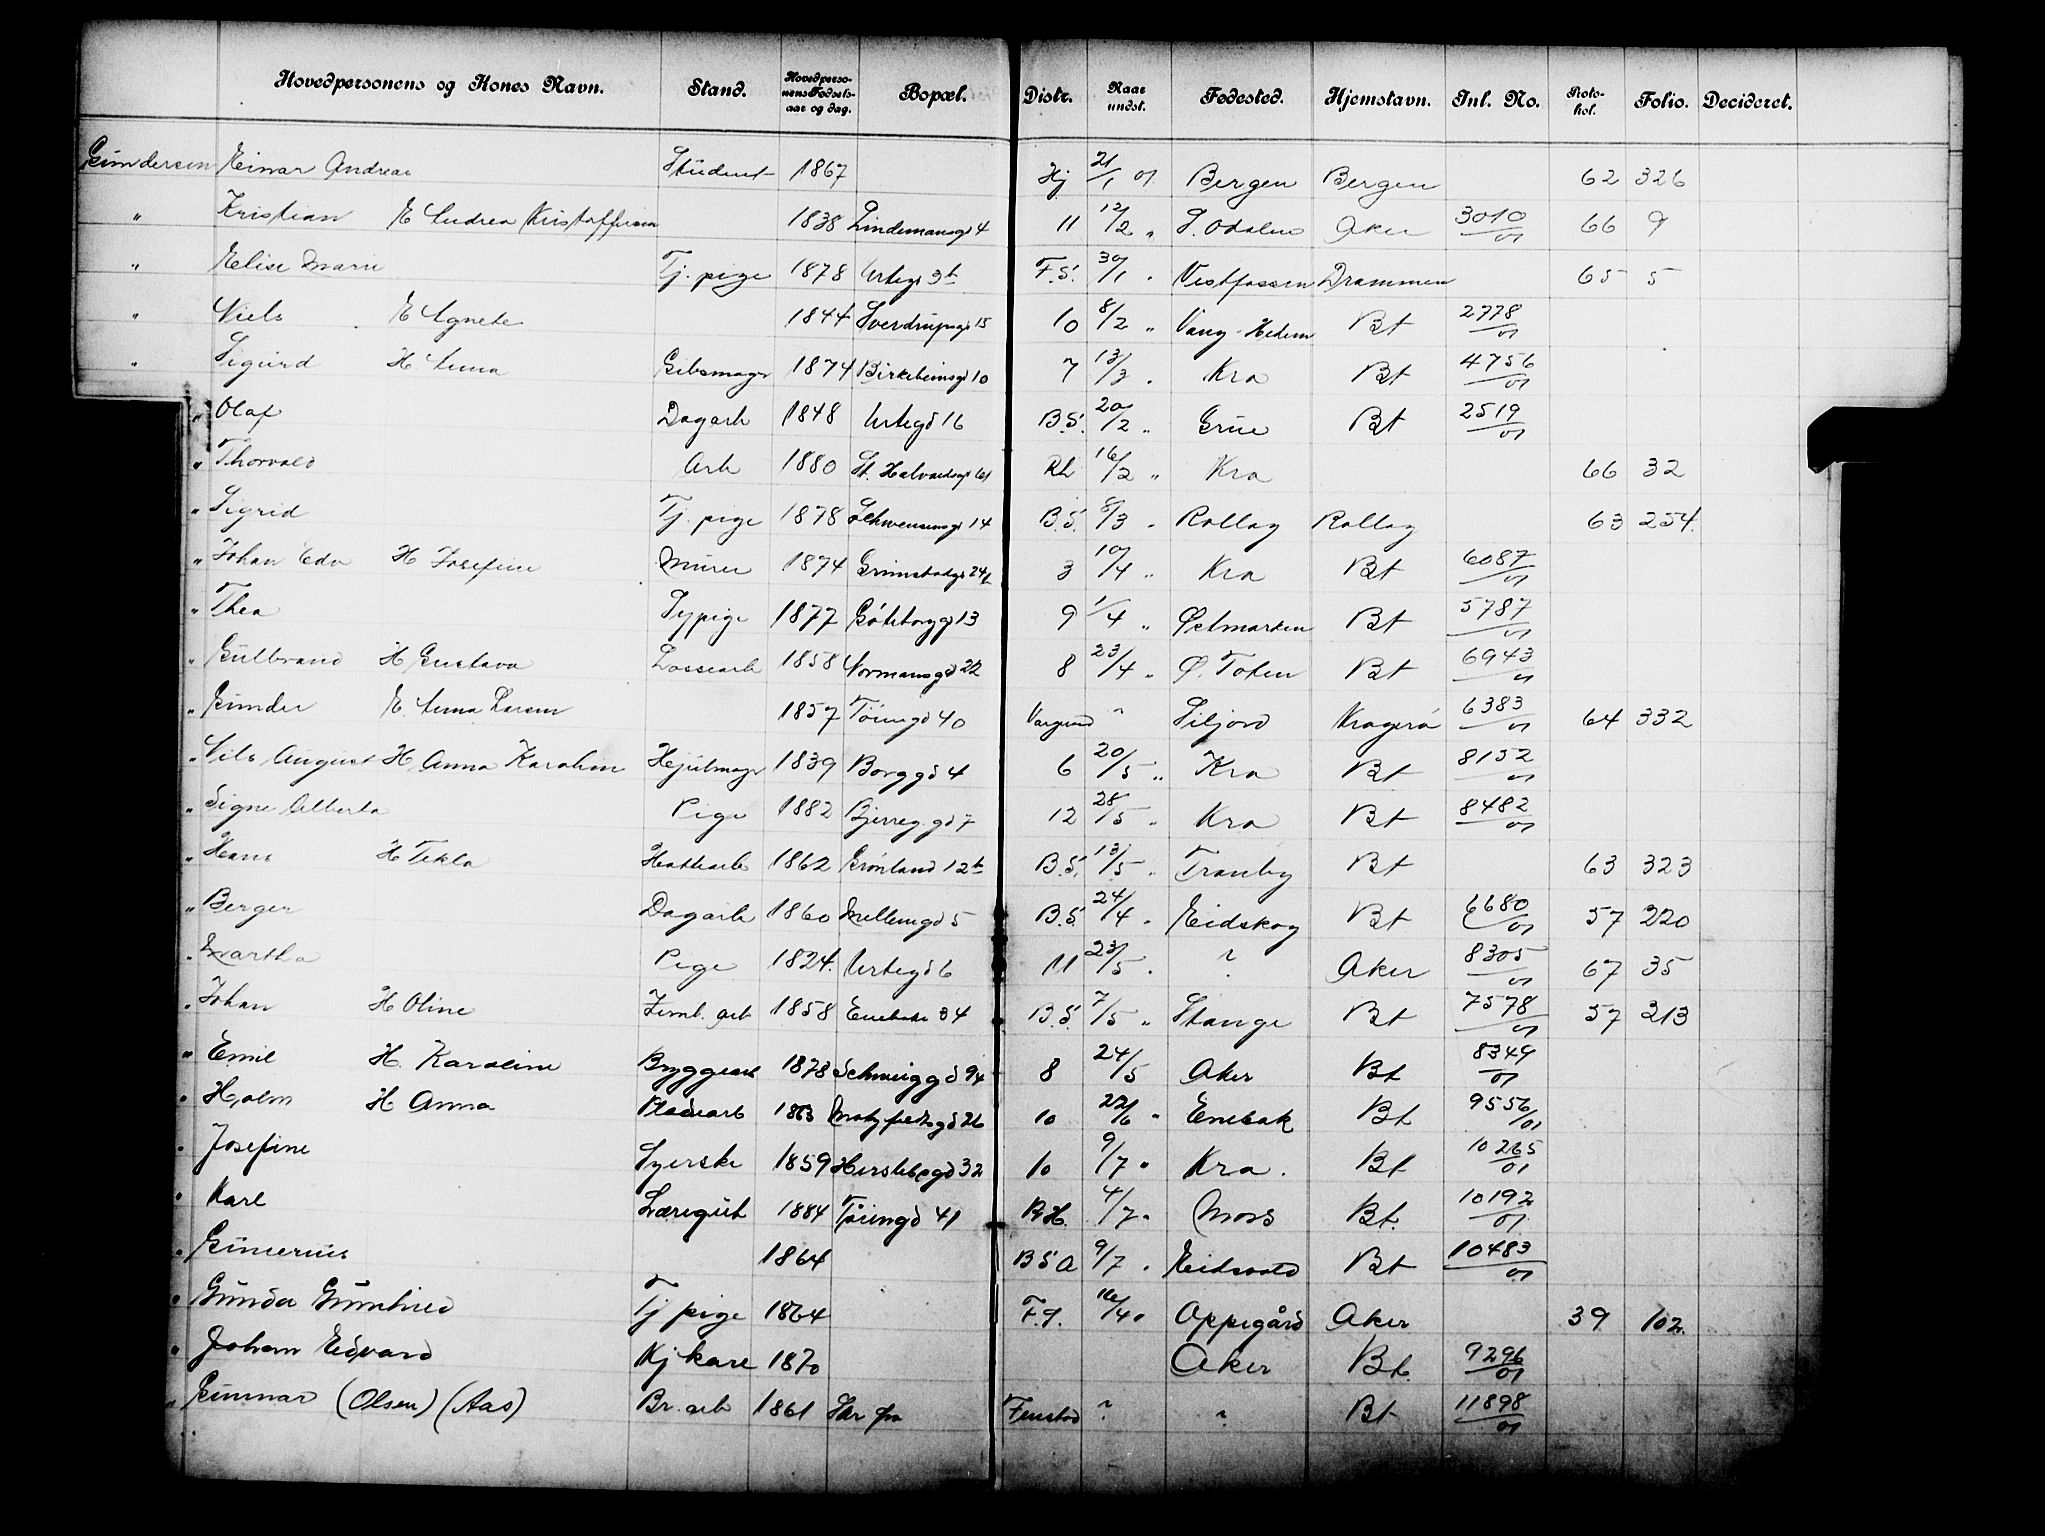 Hovedpersonens og Kones Navn. Stand. Hovedpersonens Fødsels-aar og dag. Bopæl. Distr. Naar undst. Fødested. Hjemstavn. Inl. No. Protokol. Folio. Decideret.
Gundersen Einar Andreas Student 1867 Hj 21/1 01 Bergen Bergen 62 326
" Kristian E Andrea Kristoffersen 1838 Lindemansgd 4 11 12/2 " S. Odalen Aker 3010/01 66 9
" Elise Marie Tj. pige 1878 Urtegd 3b F.S. 30/1 " Vestfossen Drammen 65 5
" Niels E Agnete 1844 Sverdrupsgd 15 10 8/2 " Vang Hedem Bt 2778/01
" Sigurd H Anna Gibsmagr 1874 Birkebeinsgd 10 7 13/3 " Kra Bt 4756/01
" Olaf Dagarb 1848 Urtegd 16 B.S. 20/2 " Grue Bt 2519/01
" Thorvald Arb 1880 St. Halvardsgd 61 RL 16/2 " Kra 66 32
" Sigrid Tj. pige 1878 Schwensensgd 14 B.S. 8/3 " Rollag Rollag 63 254
" Johan Edv H Josefine Murer 1874 Grimstadgd 24b 3 10/4 " Kra Bt 6087/01
" Thea Sypige 1877 Göteborggd 13 9 1/4 " Østmarken Bt 5787/01
" Gulbrand H Gustava Lossearb 1858 Normansgd 22 8 23/4 " Ø. Toten Bt 6943/01
" Gunder E. Anna Larsen 1857 Töiengd 40 " Siljord Kragerö 6383/01 64 332
" Nils August H Anna Karoline Hjulmagr 1839 Borggd 4 6 20/5 " Kra Bt 8152/01
" Signe Alberta Pige 1882 Bjerreg.gd 7 12 28/5 " Kra Bt 8482/01
" Hans H Tekla Hattearb 1862 Grönland 12b B.S. 13/5 " Tranby Bt 63 323
" Berger Dagarb 1860 Mellemgd 5 B.S. 24/4 " Eidskog Bt 6680/01 57 220
" Martha Pige 1824 Urtegd 6 11 23/5 " ? Aker 8305/01 67 35
" Johan H Oline Jernb. arb 1858 Enebak 34 B.S. 7/5 " Stange Bt 7578/01 57 213
" Emil H. Karoline Byggearb 1878 Schweiggd 94 8 24/5 Aker Bt 8349/01
" Holm H Anna 1863 26 10 22/6 " Enebak Bt 9556/01
" Josefine Syerske 1859 Herslebgd 32 10 9/7 " Kra. Bt 10265/01
" Karl Læregut 1884 Töiengd 41 R.H. 4/7 " Moss Bt. 10192/01
" Gunerius 1864 B S A 9/7 " Eidsvold Bt 10483/01
" Gunda Gunhild Tj pige 1864 F.g. 16/4 " Oppegård Aker 39 102
" Johan Edvard Kj kare 1870 Aker Bt. 9296/01
" Gunnar (Olsen) (Aas) Br. arb 1861 Fenstad ? ? Bt 11898/01